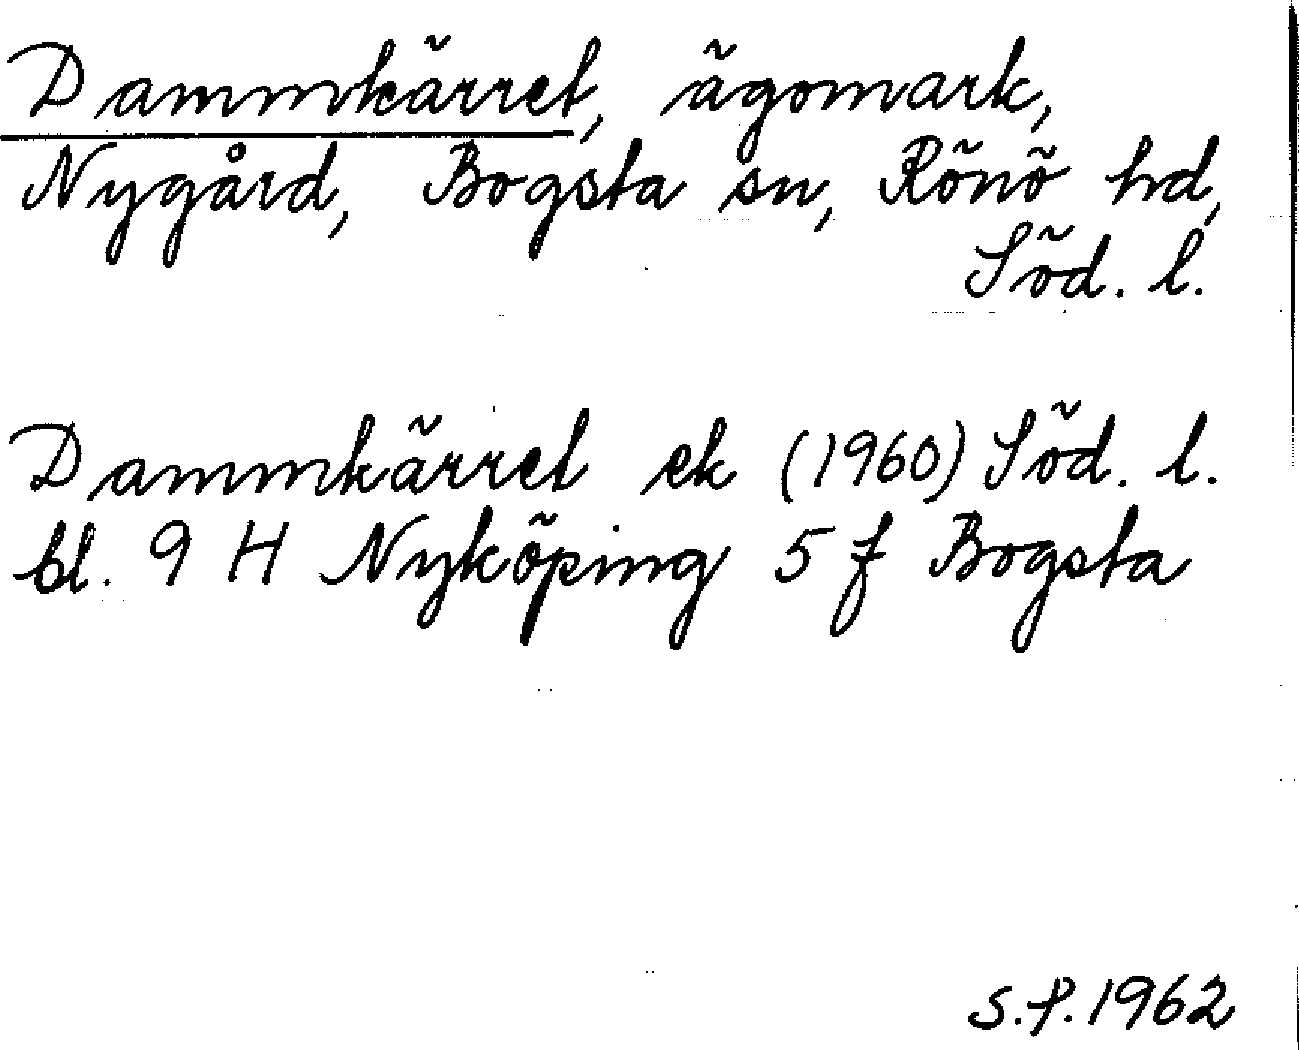 Dammkärret, ägomark,
Nygård, Bogsta sn, Rönö hd,
Söd. l.
Dammkärret ek (1960) Söd. l.
bl. 9 H Nyköping 5 f Bogsta
S.P. 1962